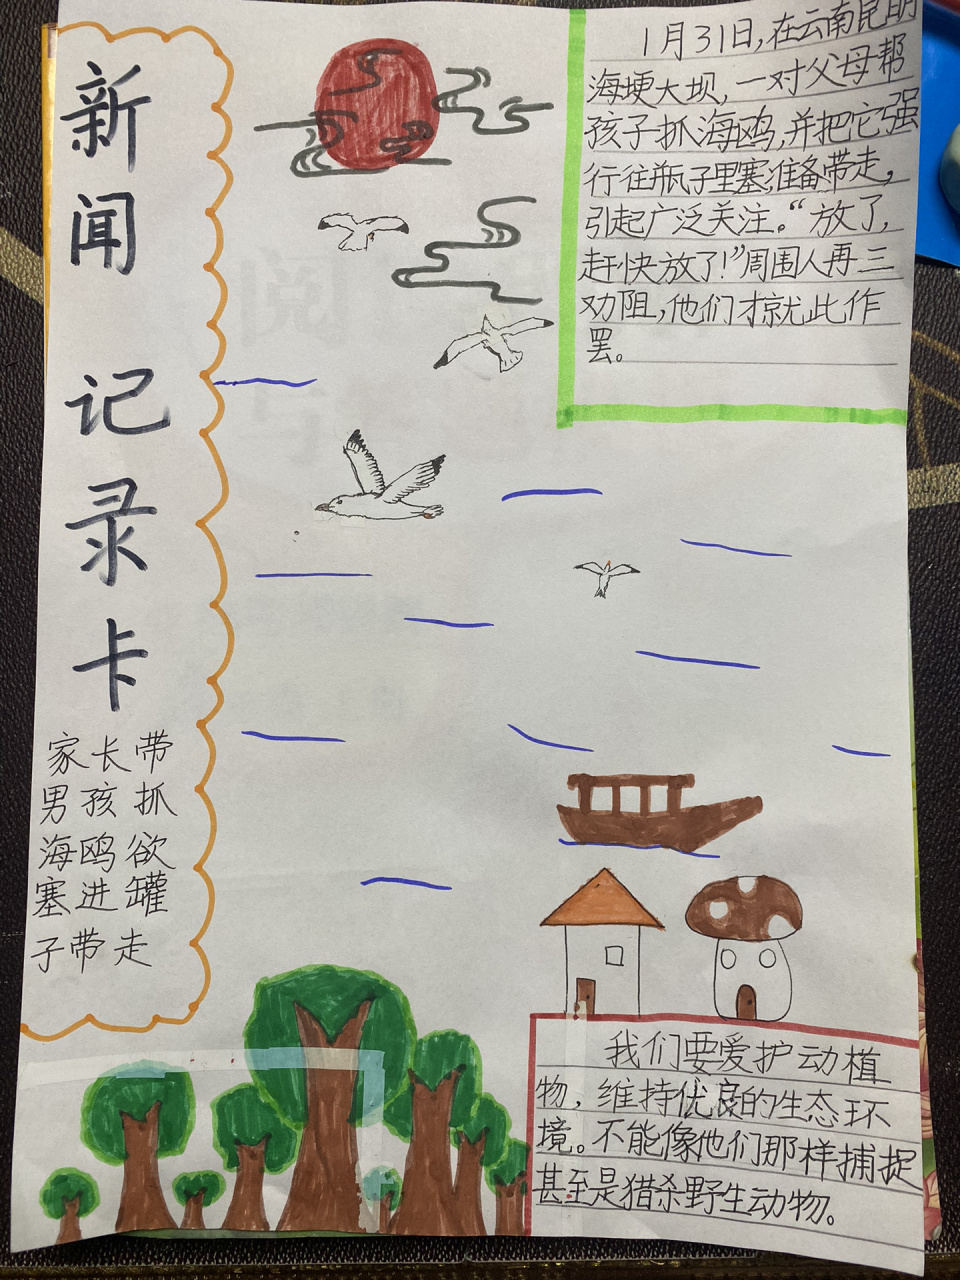 新闻 记录卡
家长带
男孩抓
海鸥欲
塞进罐
子带走
1月31日,在云南昆明
海埂大坝,一对父母帮
孩子抓海鸥,并把它强
行往瓶子里塞准备带走,
引起广泛关注。“放了,
赶快放了!”周围人再三
劝阻,他们才就此作
罢。
我们要爱护动植
物,维持优良的生态环
境。不能像他们那样捕捉
甚至是猎杀野生动物。